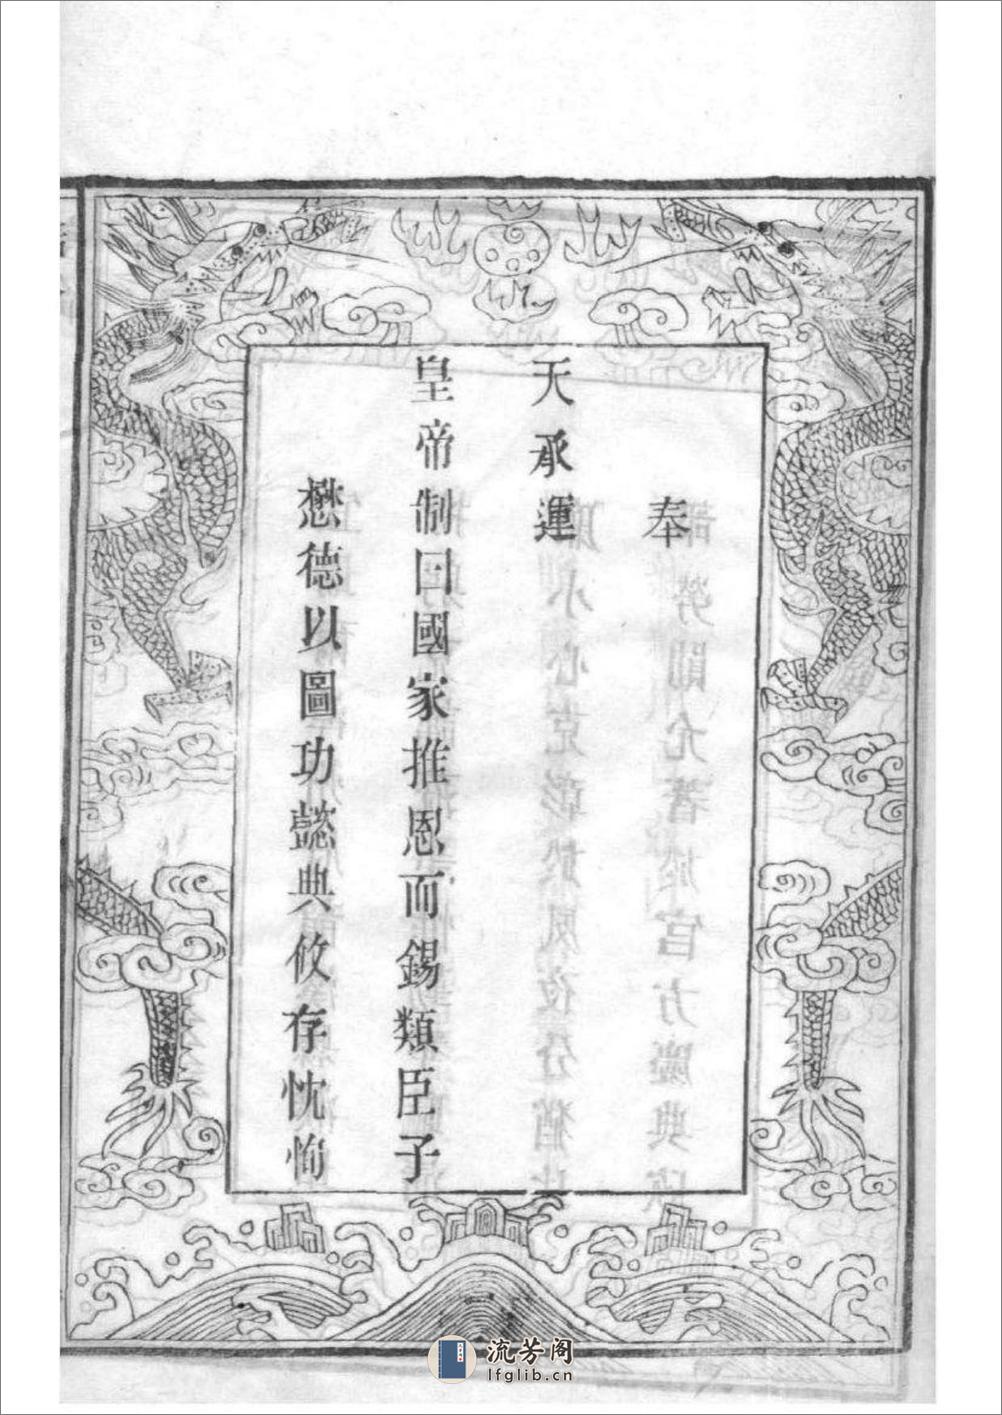 奉
天承運
皇帝制曰國家推恩而錫類臣子
懋德以圖功懿典攸存忱恂
流芳阁
lfglib.cn